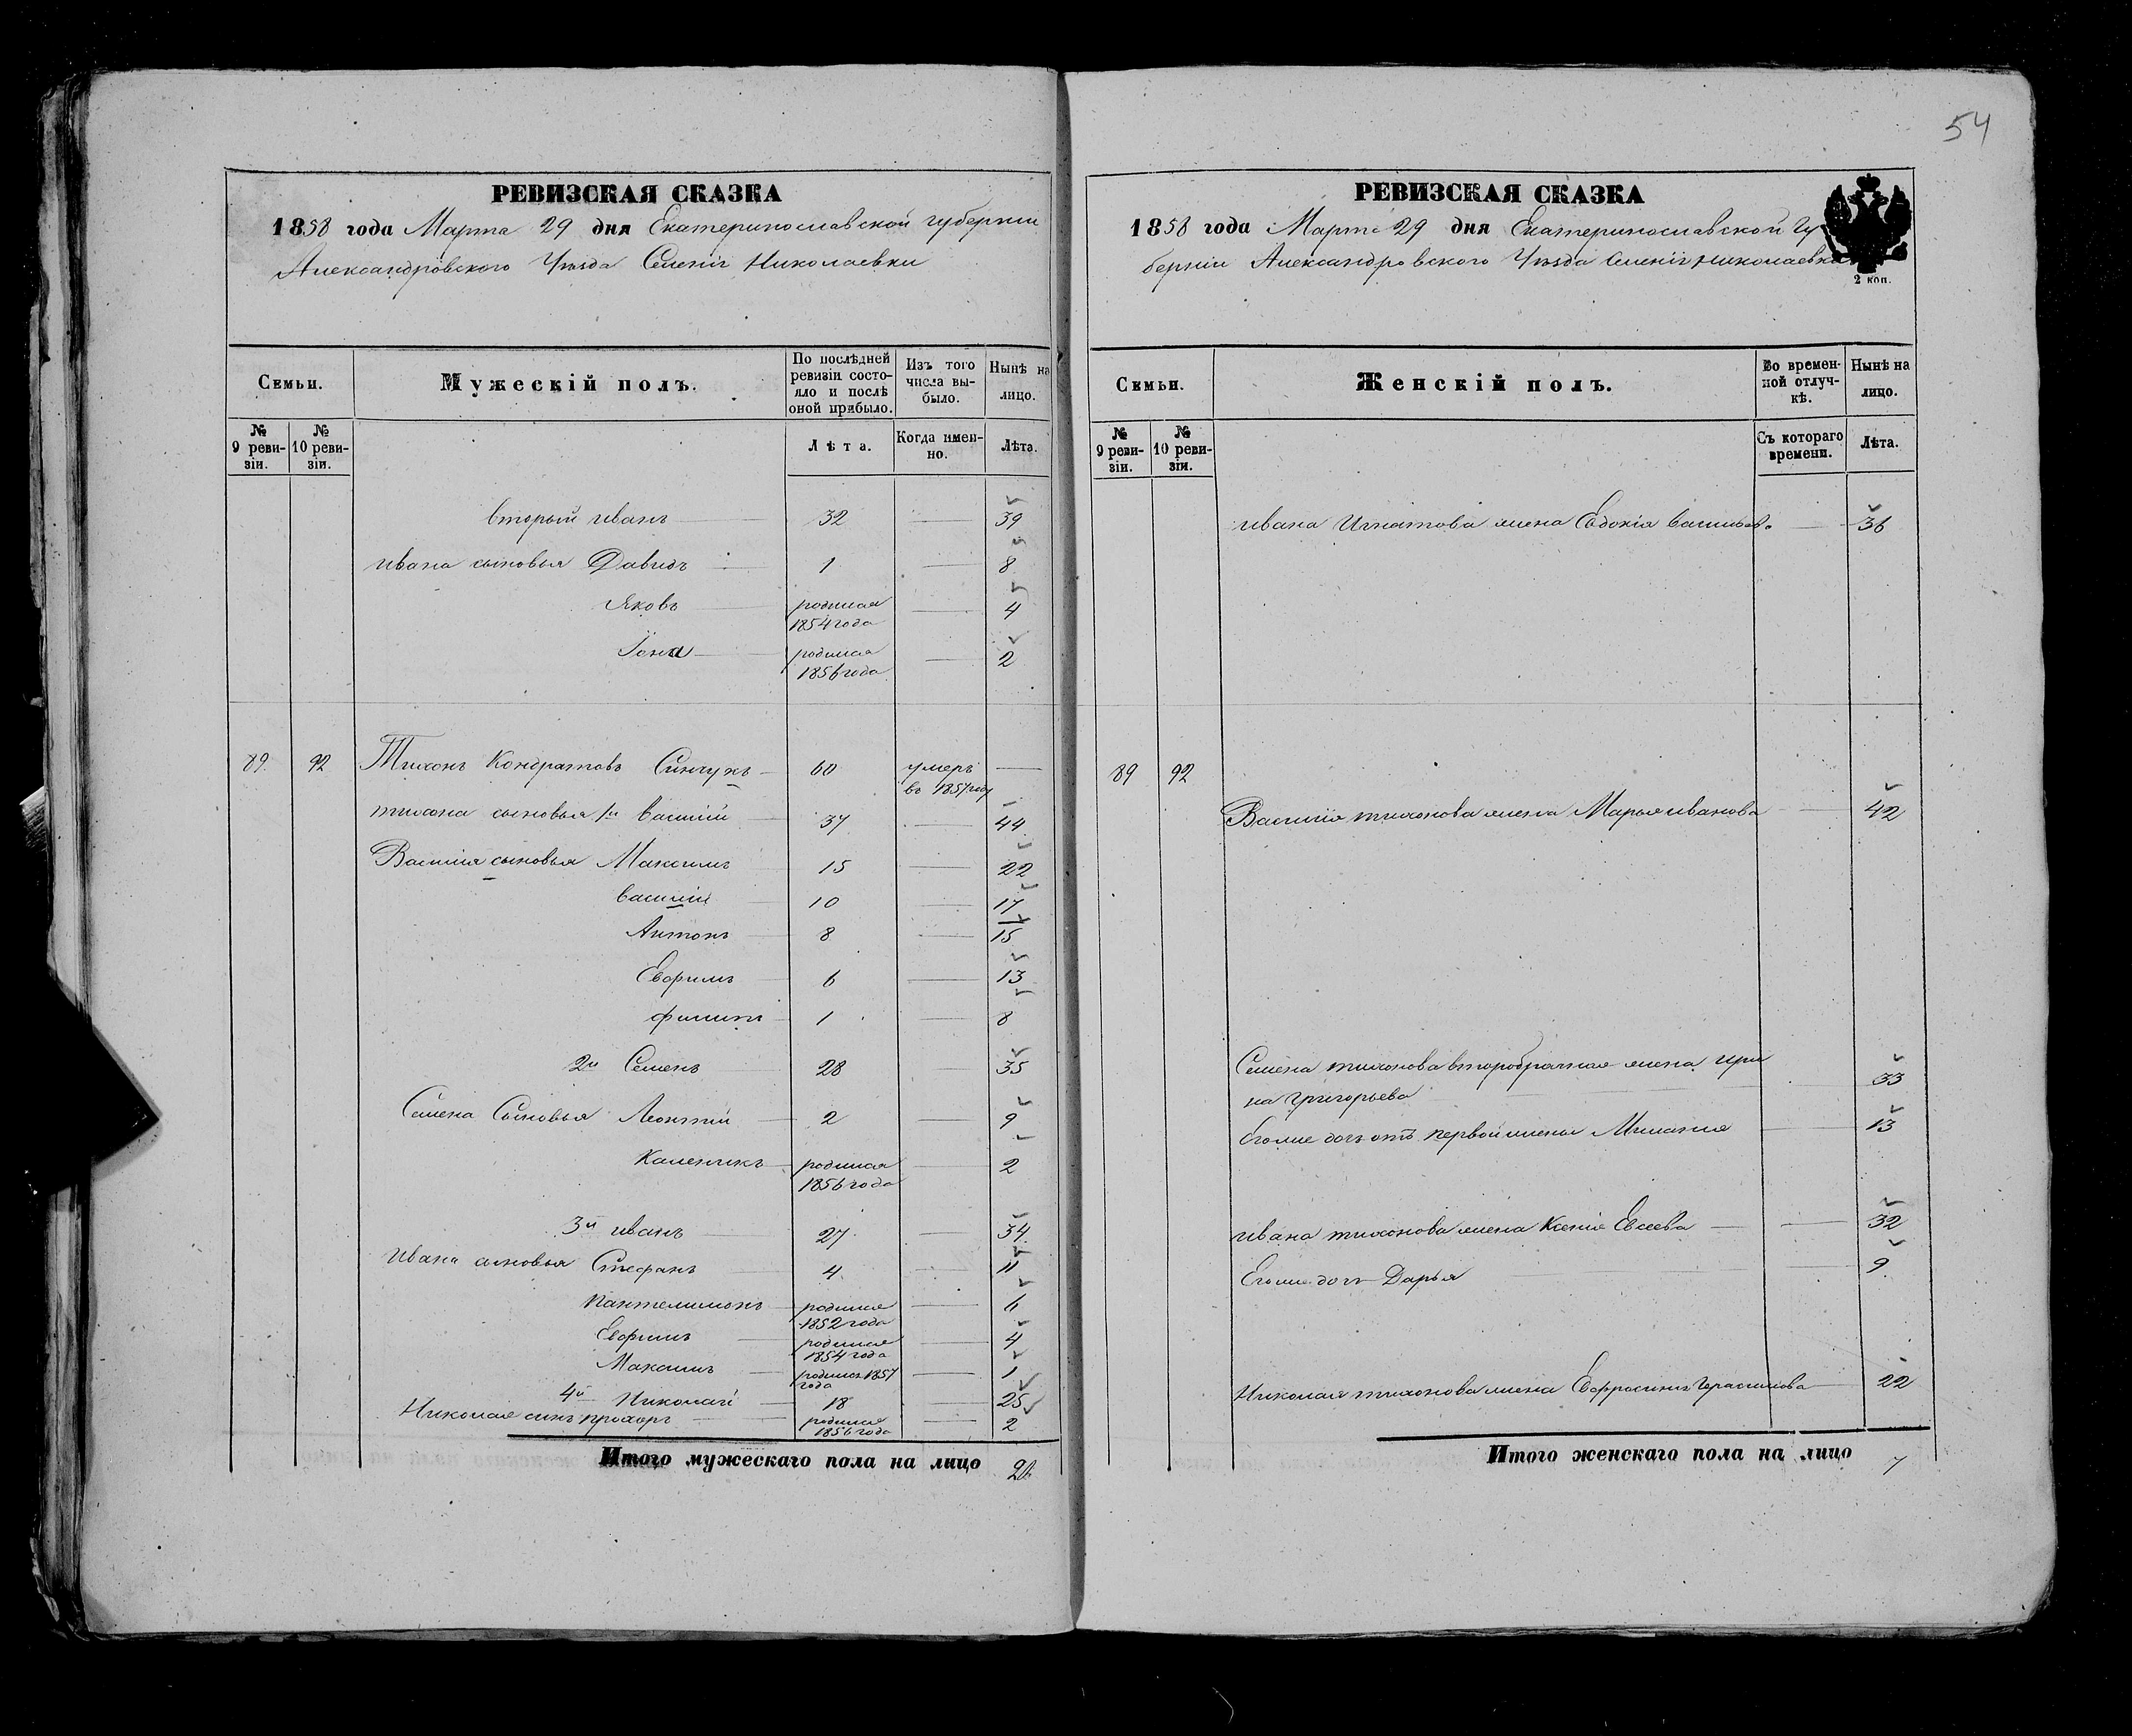 54
РЕВИЗСКАЯ СКАЗКА
1858 года Марта 29 дня Екатеринославской губернии
Александровского Уѣзда Селенія Николаевки
Семьи.
Мужескій полъ.
По послѣдней ревизіи состояло и послѣ оной прибыло.
Изъ того числа выбыло.
Нынѣ на лицо.
№ 9 ревизіи.
№ 10 ревизіи.
Лѣта.
Когда имен-но.
Лѣта.
вторый иванъ 32 — 39
ивана сыновья Давидъ 1 — 8
Яковъ родился 1854 года — 4
Іона родился 1856 года — 2
89. 92 Тихонъ Кондратовъ 60 умеръ въ 1857 году —
тихона сыновья 1й василій 37 — 44
Василія сыновья Максимъ 15 — 22
василій 10 — 17
Антонъ 8 — 15
Ефимъ 6 — 13
филипъ 1 — 8
2й Семенъ 28 — 35
Семена Сыновья Леонтій 2 — 9
Каленикъ родился 1856 года — 2
3й иванъ 27 — 34
Ивана сыновья Стефанъ 4 — 11
Пантелимонъ родился 1852 года — 6
Ефимъ родился 1854 года — 4
Максимъ родился 1857 года — 1
4й Николай 18 — 25
Николая сынъ прохоръ родился 1856 года — 2
Итого мужескаго пола на лицо 20
РЕВИЗСКАЯ СКАЗКА
1858 года Марта 29 дня Екатеринославской Гу
берніи Александровского Уѣзда Селенія Николаевка
2 коп.
Семьи.
Женскій полъ.
Во времен-ной отлуч-кѣ.
Нынѣ на лицо.
№ 9 реви-зіи.
№ 10 реви-зіи.
Съ котораго времени.
Лѣта.
ивана Игнатова жена Евдокія васильева — 36
89 92
Василія тихонова жена Марья иванова — 42
Семена тихонова второбрачная жена Ири
на Григорьева — 33
Егоже дочь отъ первой жены — 13
ивана тихонова жена Ксенія Евсеева — 32
Егоже дочь Дарья — 9
Николая тихонова жена Евфросинія Герасимова 22
Итого женскаго пола на лицо 7